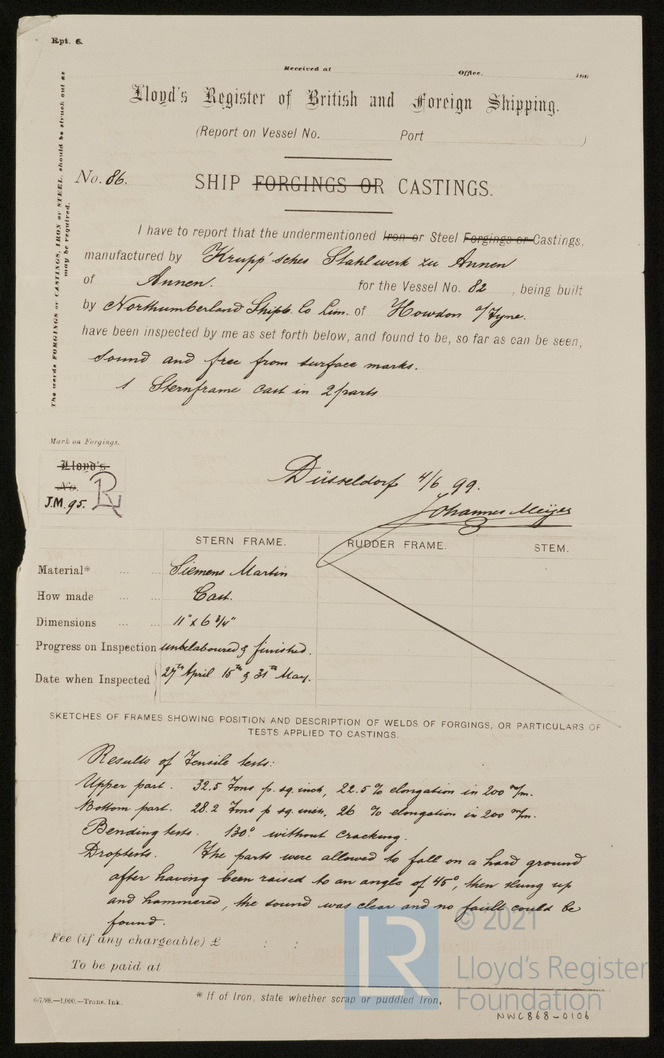 Rpt. 6.
Received at Office, 189
Lloyd's Register of British and Foreign Shipping.
(Report on Vessel No. Port )
No. 86. SHIP FORGINGS OR CASTINGS.
The words FORGINGS or CASTINGS, IRON or STEEL, should be struck out as may be required.
I have to report that the undermentioned Iron or Steel Forgings or Castings,
manufactured by Krupp'sches Stahlwerk zu Annen
of Annen. for the Vessel No. 82, being built
by Northumberland Shipb. Co Lim. of Howdon o/Tyne.
have been inspected by me as set forth below, and found to be, so far as can be seen,
sound and free from surface marks.
1 Sternframe cast in 2 parts
Mark on Forgings.
Lloyd's
No.
J.M. 95. LR
Düsseldorf 4/6 99.
Johannes Meyer
STERN FRAME. RUDDER FRAME. STEM.
Material* ... ... Siemens Martin
How made ... ... Cast.
Dimensions ... ... 11" x 6 3/4"
Progress on Inspection unbelaboured & finished.
Date when Inspected 27th April 15th & 31th May.
SKETCHES OF FRAMES SHOWING POSITION AND DESCRIPTION OF WELDS OF FORGINGS, OR PARTICULARS OF
TESTS APPLIED TO CASTINGS.
Results of Tensile tests:
Upper part. 32.5 Tons p. sq. inch, 22.5 % elongation in 200 m/m.
Bottom part. 28.2 Tons p sq. inch, 26 % elongation in 200 m/m.
Bending tests. 130° without cracking.
Droptests. The parts were allowed to fall on a hard ground
after having been raised to an angle of 45°, then slung up
and hammered, the sound was clear and no fault could be
found.
Fee (if any chargeable) £ : :
To be paid at
6/7/98.—1,000.—Trans. Ink.
* If of Iron, state whether scrap or puddled Iron,
LR © 2021
Lloyd's Register
Foundation
NWC868-0106